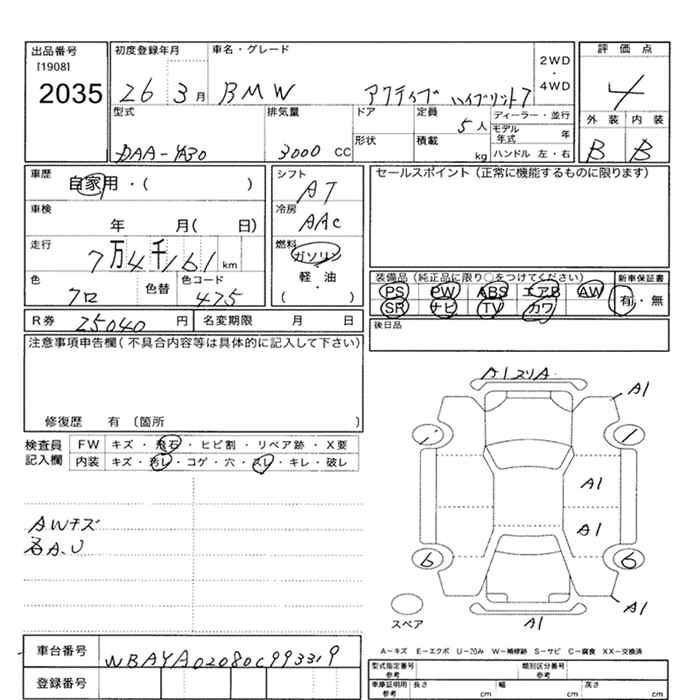 出品番号 初度登録年月 車名・グレード 評価点
[1908] 2035 26 3月 BMW アクティブ ハイブリット7 2WD・4WD 4
型式 排気量 ドア 定員 ディーラー・並行 外装 内装
5人 モデル年式 年
DAA-YA30 3000 CC 形状 積載 kg ハンドル 左・右 B B
車歴 シフト セールスポイント(正常に機能するものに限ります)
自家用・( ) AT
車検 冷房
年 月( 日) AAC
走行 燃料
7万4千161km ガソリン
色 色替 色コード 軽・油 装備品(純正品に限り○をつけてください) 新車保証書
クロ 475 ( ) PS PW ABS エアB AW 有・無
SR ナビ TV カワ
R券 25040円 名変期限 月 日 後日品
注意事項申告欄(不具合内容等は具体的に記入して下さい)
修復歴 有 (箇所 )
検査員記入欄 FW キズ・飛石・ヒビ割・リペア跡・X要
内装 キズ・汚レ・コゲ・穴・スレ・キレ・破レ
AWキズ
各A.U
A1 スリA
A1
A1
A1
A1
6 6
A1
A1
スペア
A-キズ E-エクボ U-凹み W-補修跡 S-サビ C-腐食 XX-交換済
車台番号 WBAYA02080C993319
型式指定番号 参考 類別区分番号 参考
登録番号 車庫証明用 参考 長さ cm 幅 cm 高さ cm